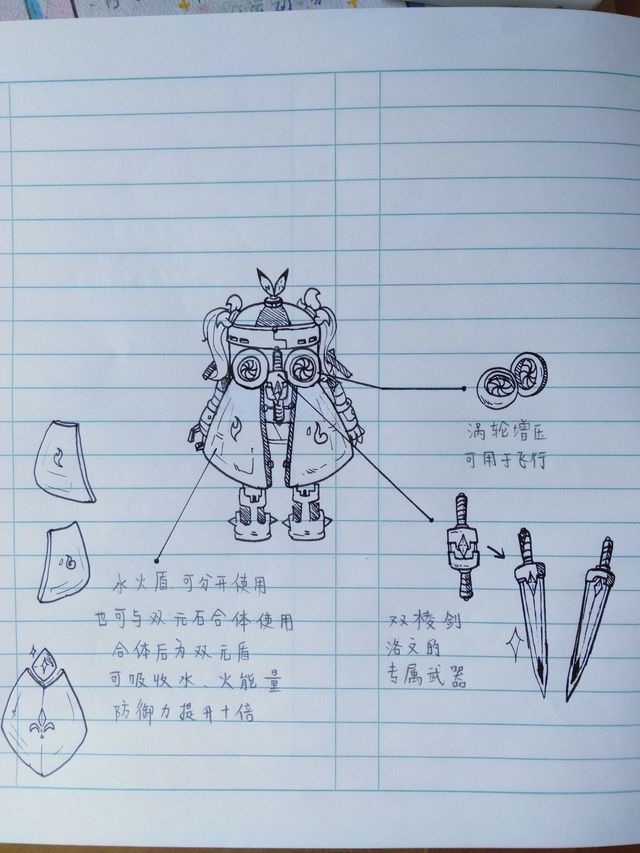 涡轮增压
可用于飞行
水火盾.可分开使用
也可与双元石合体使用
合体后为双元盾
可吸收水、火能量
防御力提升十倍
双棱剑
洛文的
专属武器